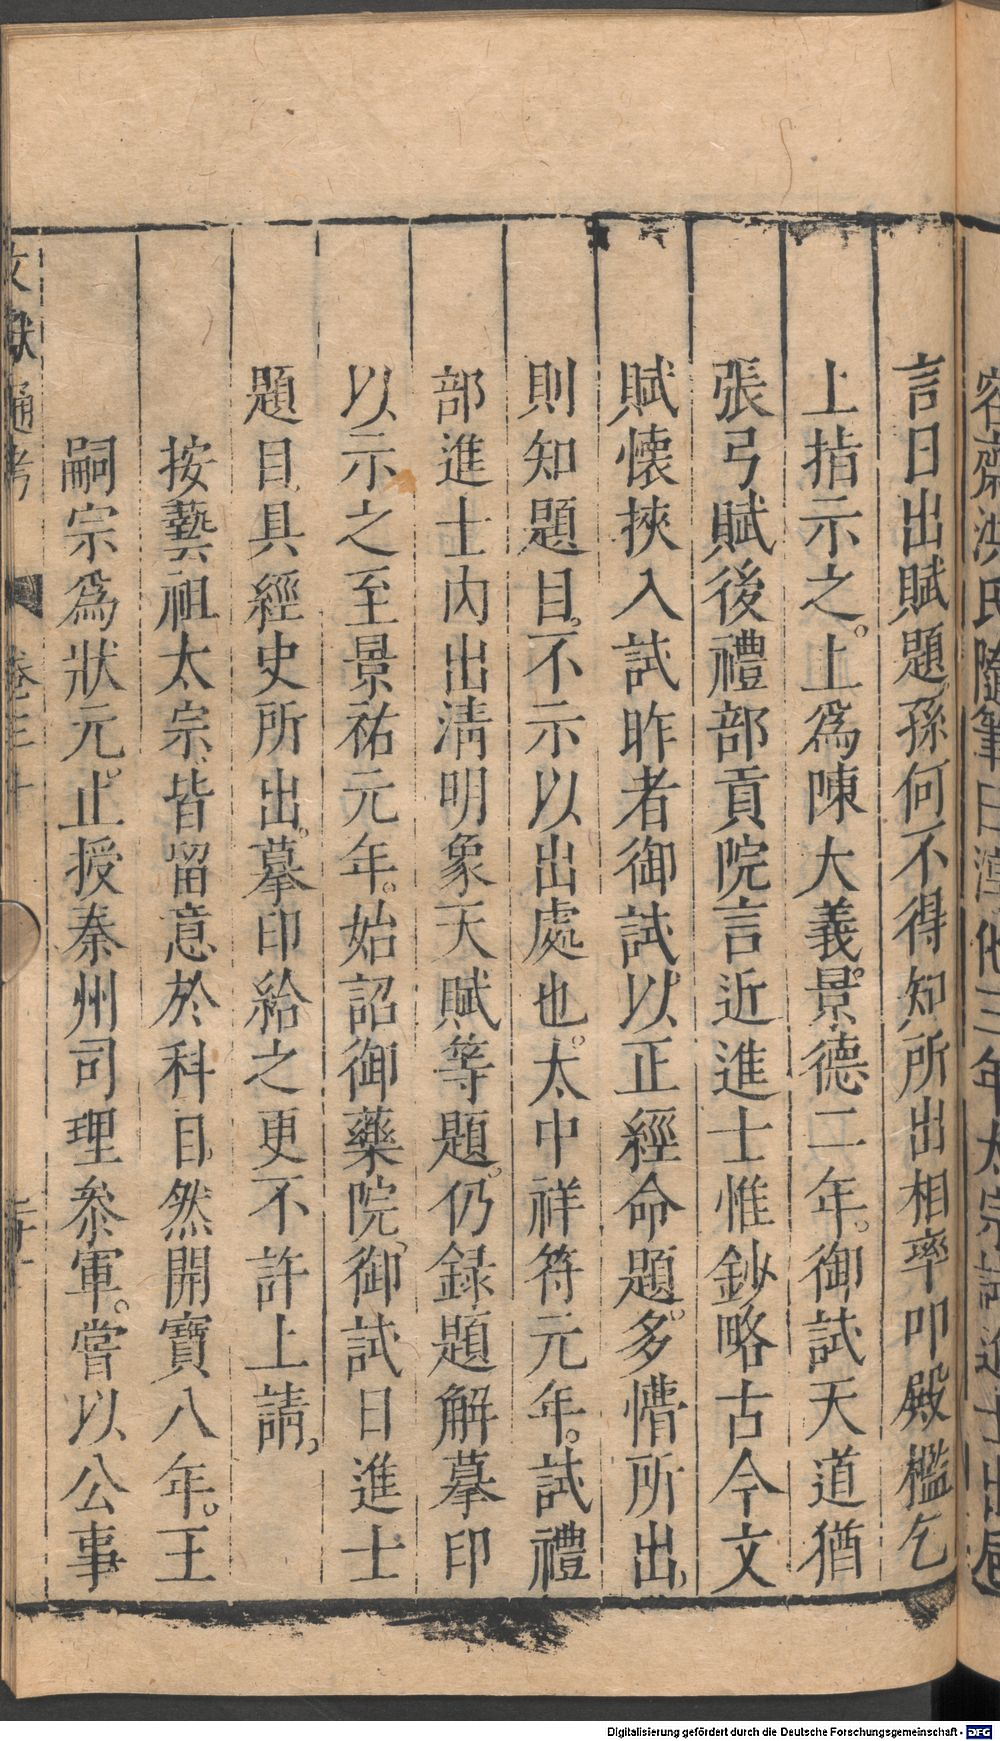 容齋洪氏隨筆曰淳化三年太宗試進士出卮
言日出賦題孫何不得知所出相率叩殿檻乞
上指示之。上爲陳大義。景德二年。御試天道猶
張弓賦後禮部貢院言近進士惟鈔略古今文
賦懷挾入試昨者御試以正經命題。多懵所出、
則知題目。不示以出處也。太中祥符元年。試禮
部進士内出清明象天賦等題。仍録題解摹印
以示之至景祐元年。始詔御藥院、御試日進士
題目具經史所出。摹印給之更不許上請、
按藝祖太宗、皆留意於科目、然開寶八年。王
嗣宗爲狀元。止授秦州司理叅軍。嘗以公事
文獻通考 卷三十
Digitalisierung gefördert durch die Deutsche Forschungsgemeinschaft - DFG